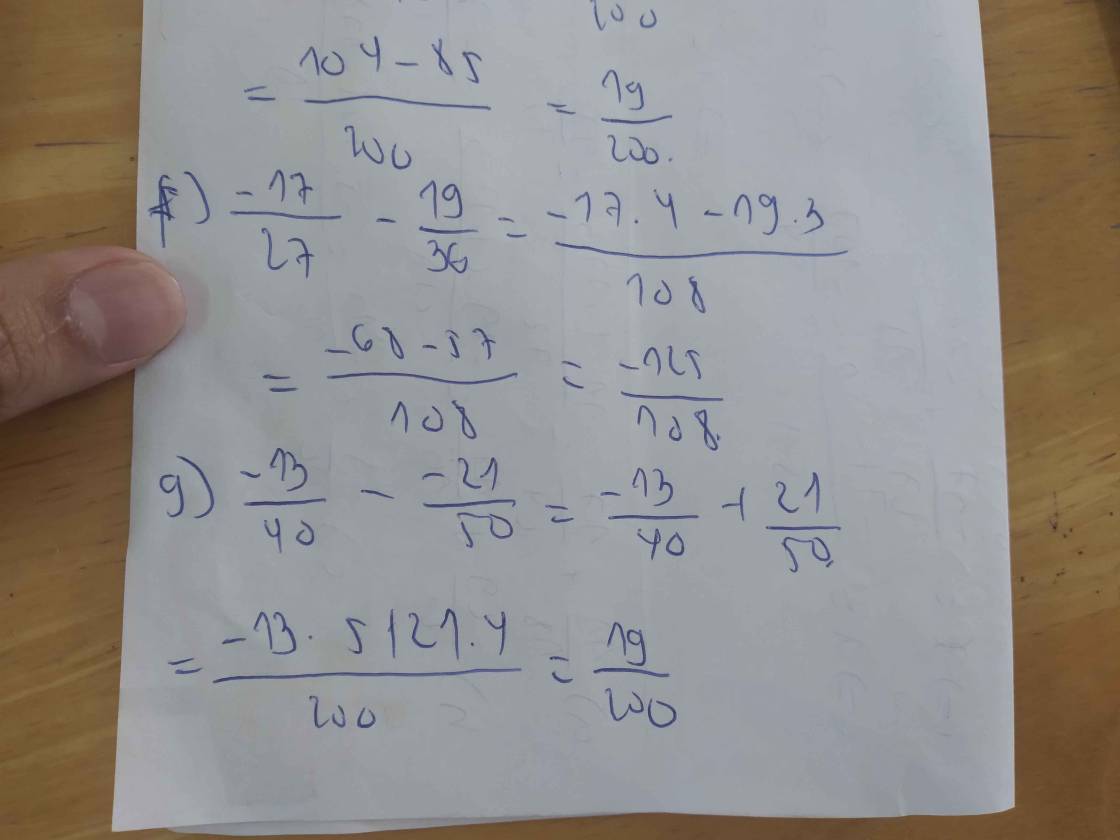 200
= \frac{104-85}{200} = \frac{19}{200}.
f) \frac{-17}{27} - \frac{19}{36} = \frac{-17.4-19.3}{108}
= \frac{-68-57}{108} = \frac{-125}{108}.
g) \frac{-13}{40} - \frac{-21}{50} = \frac{-13}{40} + \frac{21}{50}.
= \frac{-13.5+21.4}{200} = \frac{19}{200}